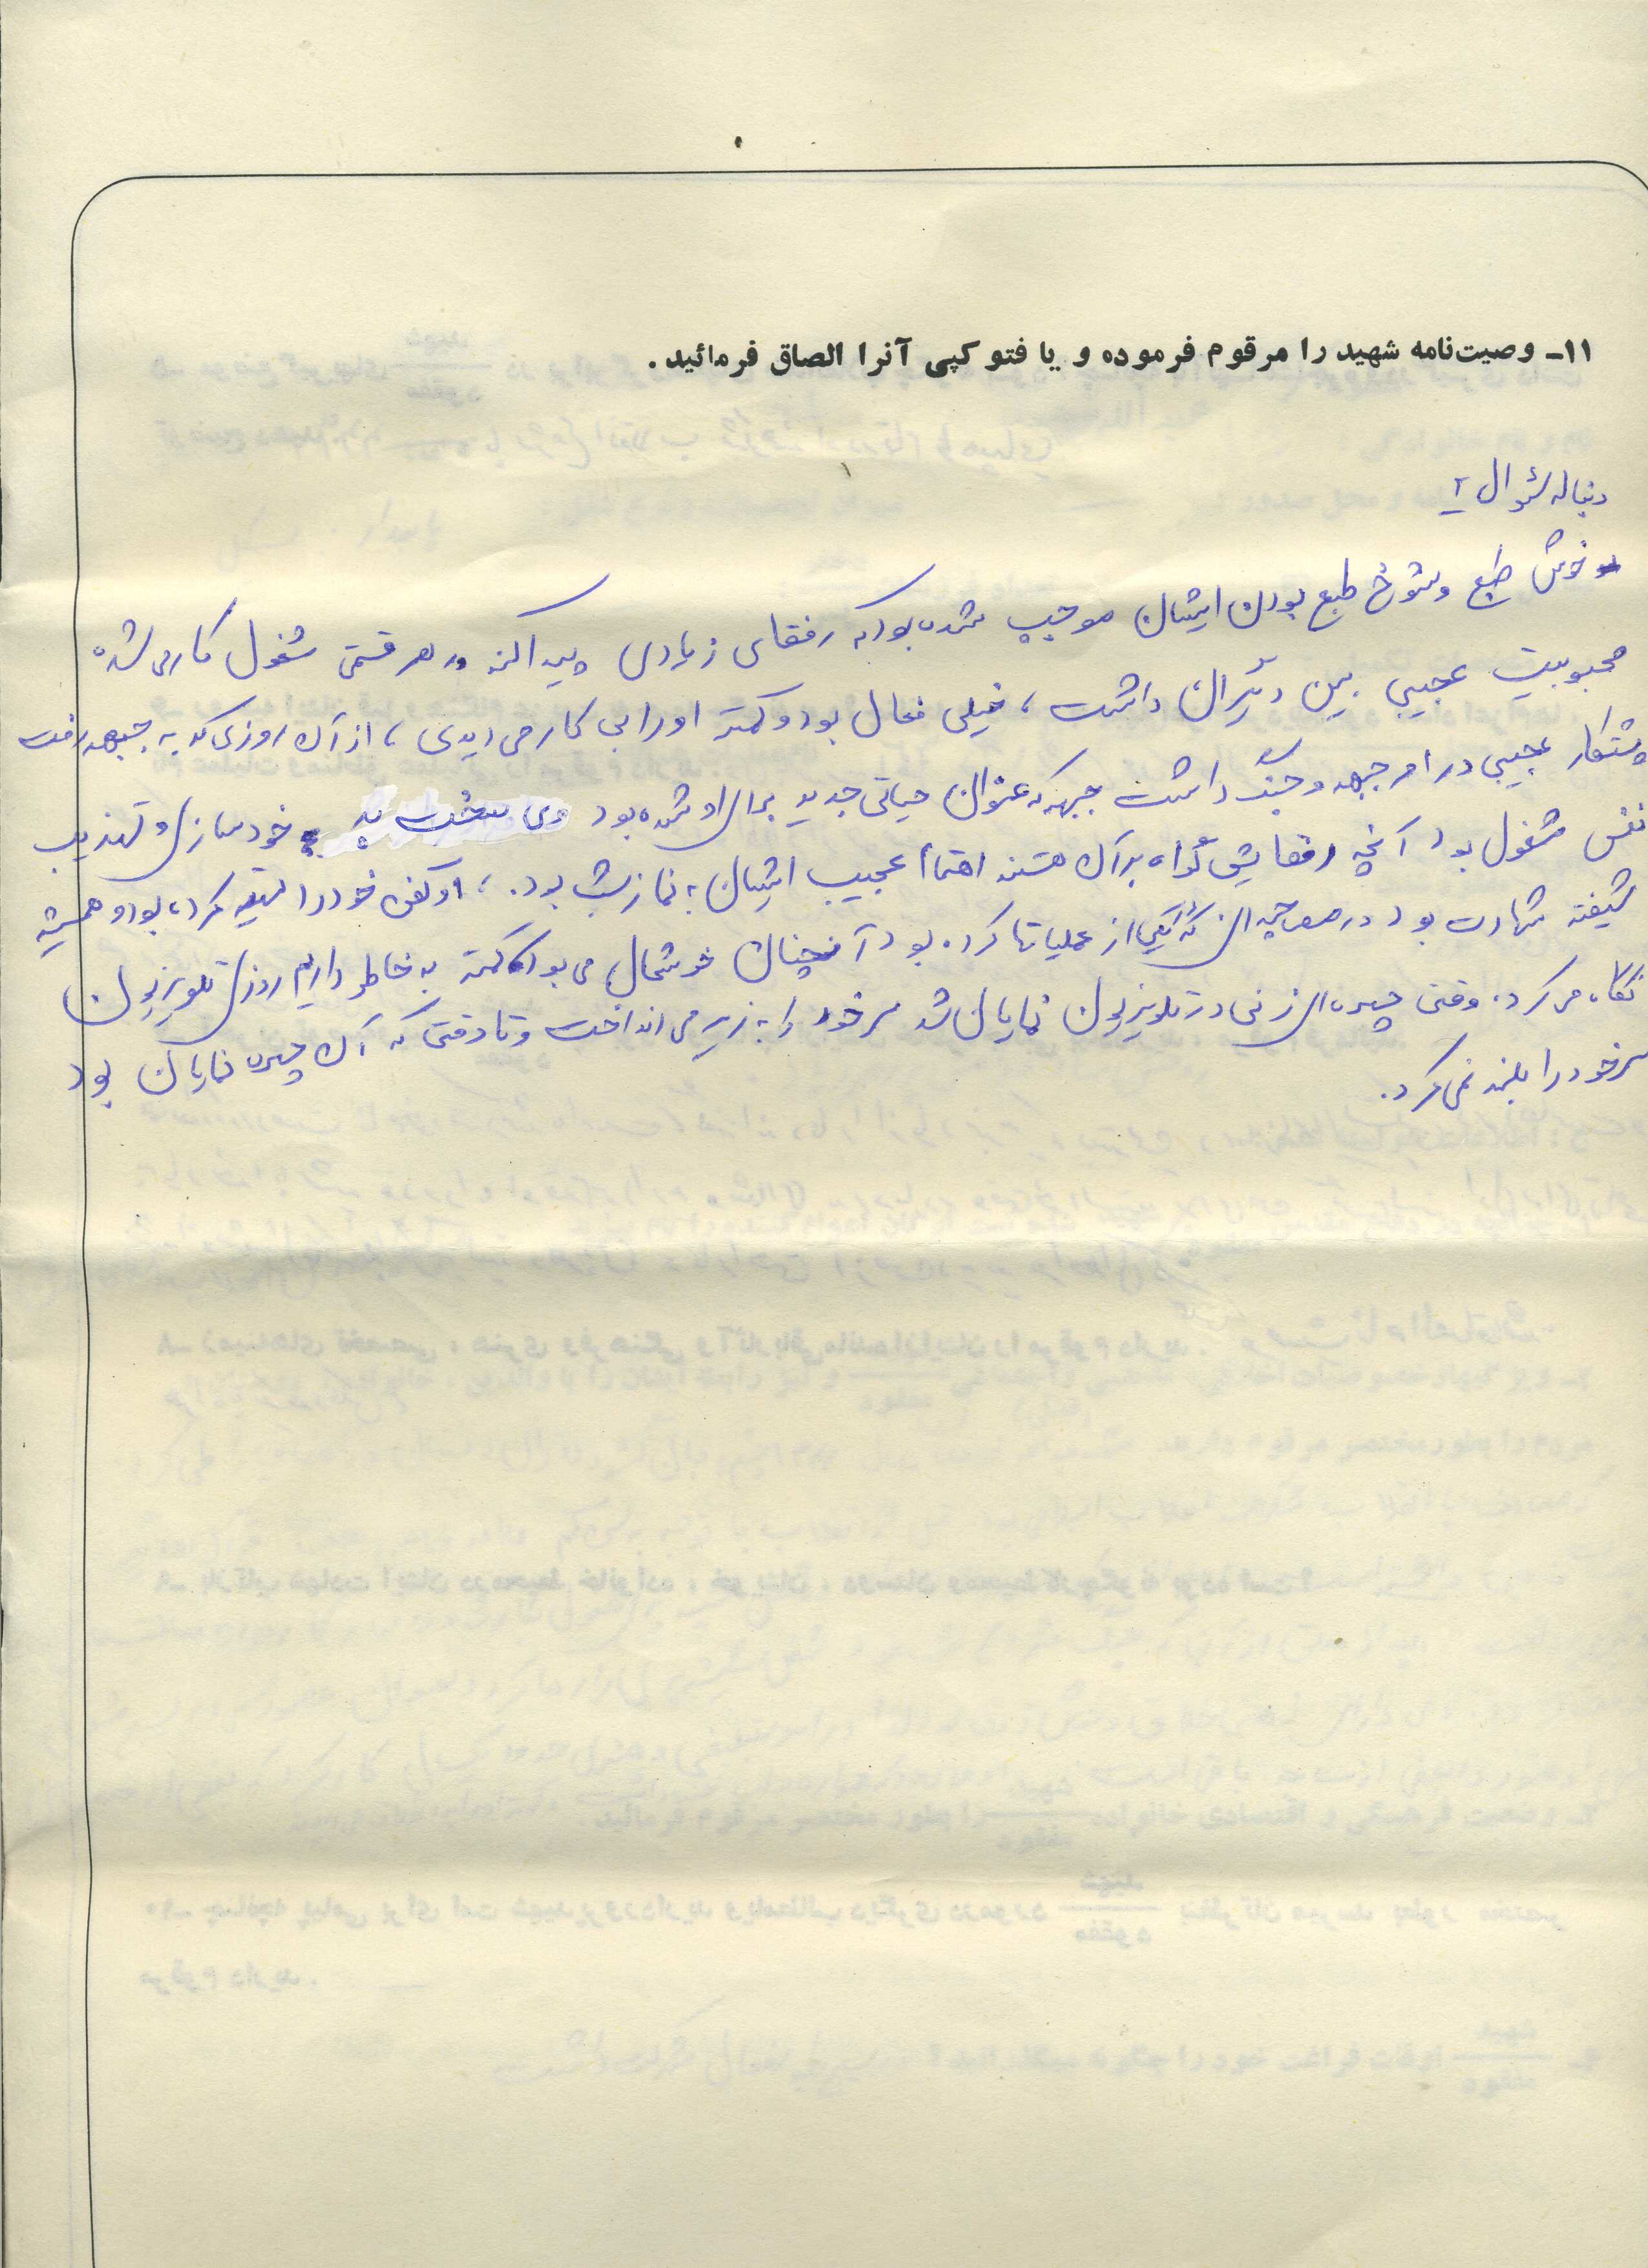 ۱۱- وصیت‌نامه شهید را مرقوم فرموده و یا فتوکپی آنرا الصاق فرمائید.
دنباله سئوال ۲
خوش طبع و شوخ طبع بودن ایشان موجب شده بود که رفقای زیادی پیدا کند در هر قسمتی مشغول کار می شد
محبوبیت عجیبی بین دیگران داشت، خیلی فعال بود و کمتر او را بی کار می دیدی، از آن روزی که به جبهه رفت
پشتکار عجیبی در امر جبهه و جنگ داشت جبهه که عنوان حیاتی جدید برای او شده بود وی سخت به خودسازی و تهذیب
نفس مشغول بود آنچه رفقایش گواه بر آن هستند اهتمام عجیب ایشان به نماز شب بود. او کفن خود را تهیه کرده بود و همیشه
شیفته شهادت بود در مصاحبه ای که یکی از عملیاتها کرده بود آنچنان خوشحال می بود که به خاطر داریم روزی تلویزیون
نگاه می کرد. وقتی چهره ای زنی در تلویزیون نمایان شد سر خود را به زیر می انداخت و تا وقتی که آن چهره نمایان بود
سر خود را بلند نمی کرد.